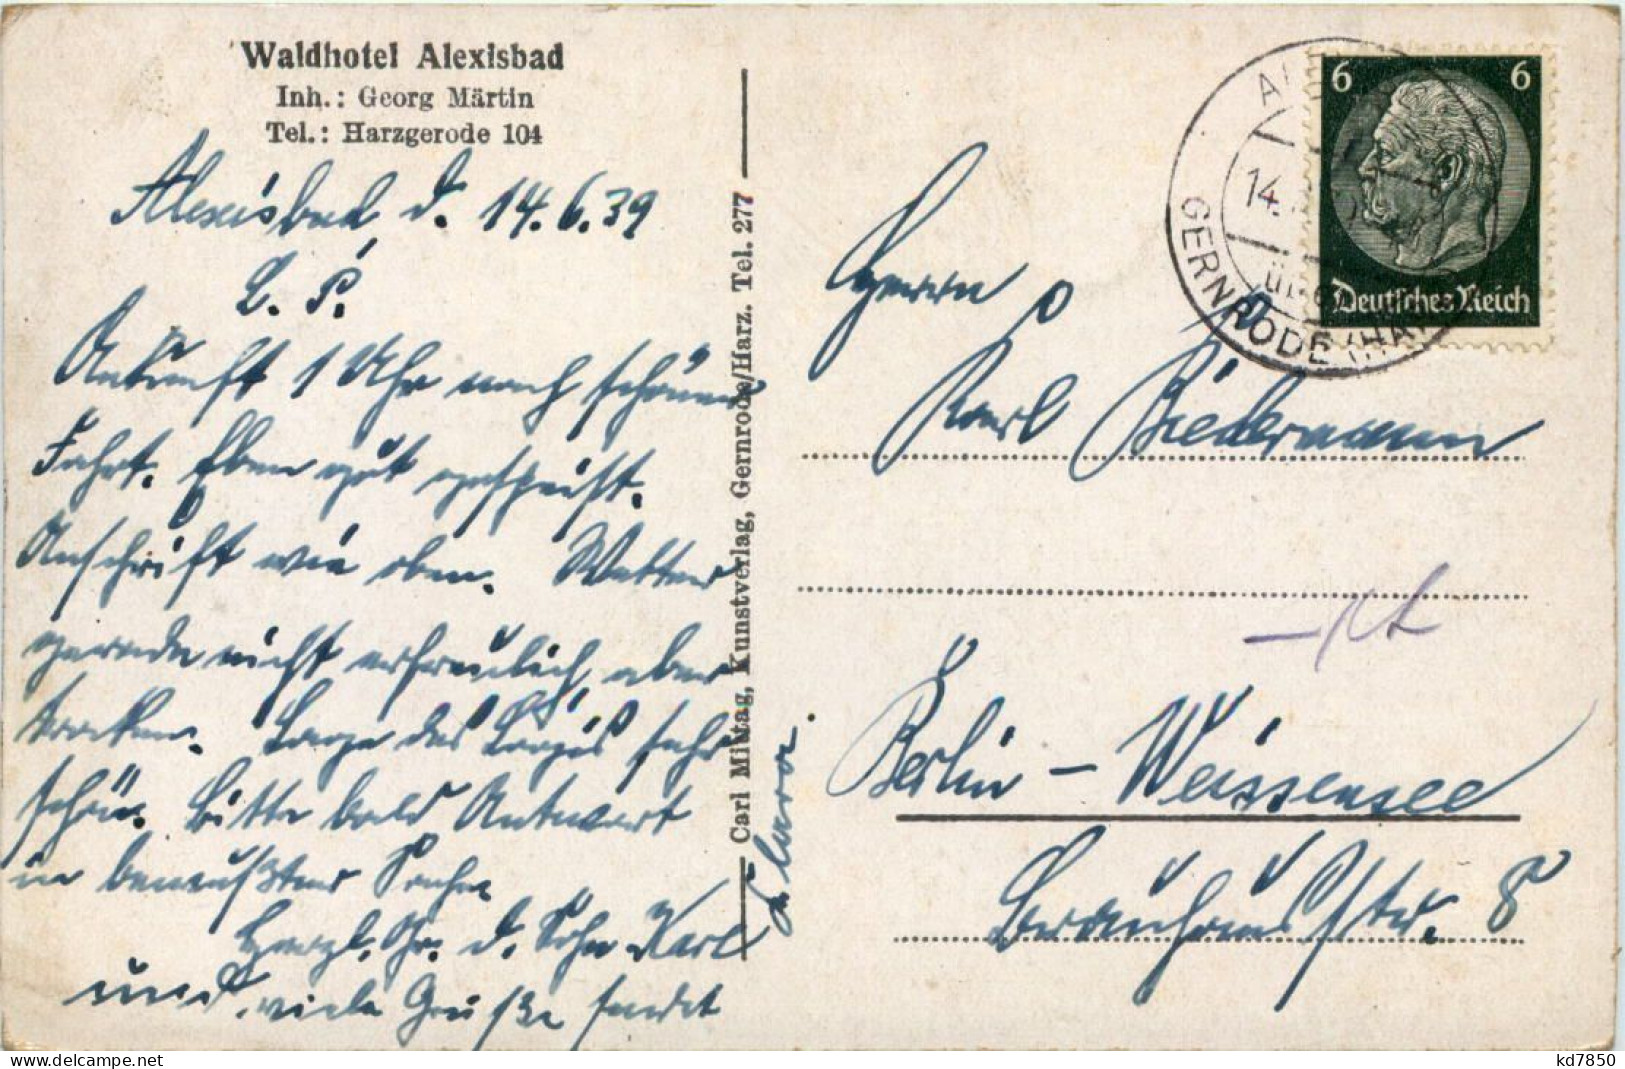 Waldhotel Alexisbad
Inh.: Georg Märtin
Tel.: Harzgerode 104
Alexisbad, d. 14.6.39
L. P.!
Ankunft 1 Uhr nach schöner
Fahrt. Eben gut gespeist.
Anschrift wie oben. Wetter
gerade nicht erfreulich, aber
trocken. Lage des Logis sehr
schön. Bitte bald Antwort
in bewußter Sache
Herzl. Gr. d. Sohn Karl
und viele Grüße sendet
Clara.
Carl Mittag, Kunstverlag, Gernrode/Harz. Tel. 277
6 6
Deutsches Reich
14.
über
GERNRODE (HARZ)
Herrn
Karl Biedermann
Berlin-Weissensee
Str. 8
kd7850